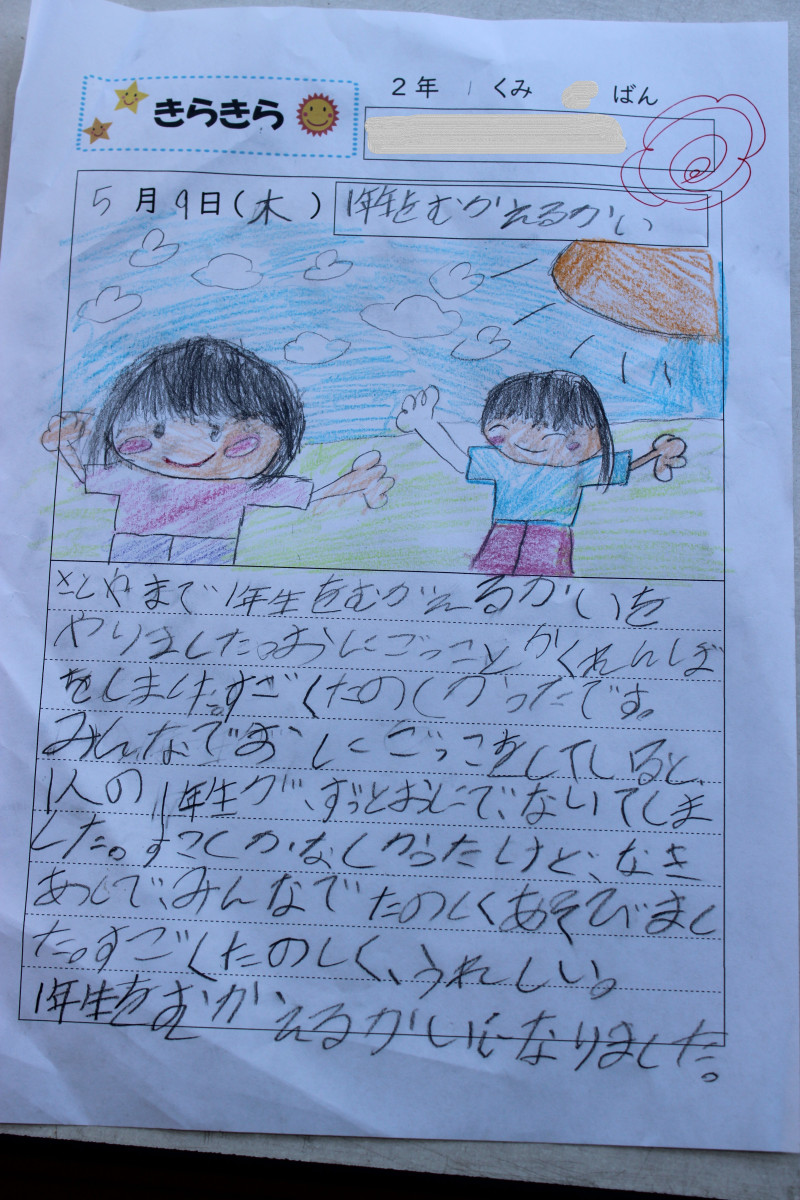 きらきら
2年 1くみ ばん
5月9日(木) 1年をむかえるかい
とやまで1年生をむかえるかいを
やりました。おにごっことかくれんぼ
をしました。すごくたのしかったです。
みんなでおにごっこをしていると、
1人の1年生が、ずっとおにで、ないてしま
した。すこしかなしかったけど、なき
あつしで、みんなでたのしくあそびまし
た。すごくたのしく、うれしい。
1年生をむかえるかいになりました。